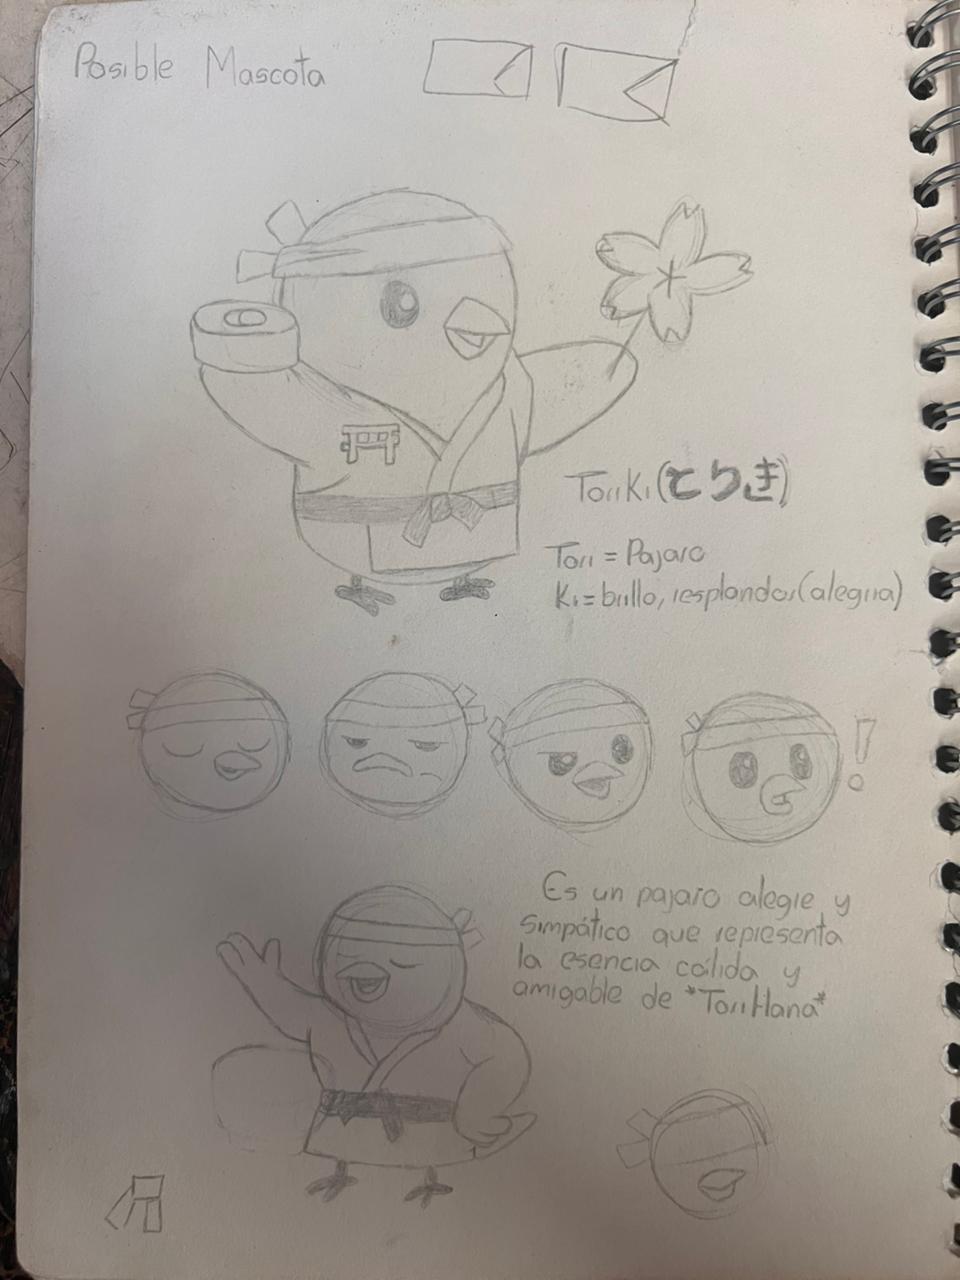 Posible Mascota
Toriki (とりき)
Tori = Pajaro
Ki = brillo, resplandor (alegria)
!
Es un pajaro alegre y
simpático que representa
la esencia cálida y
amigable de *ToriHana*